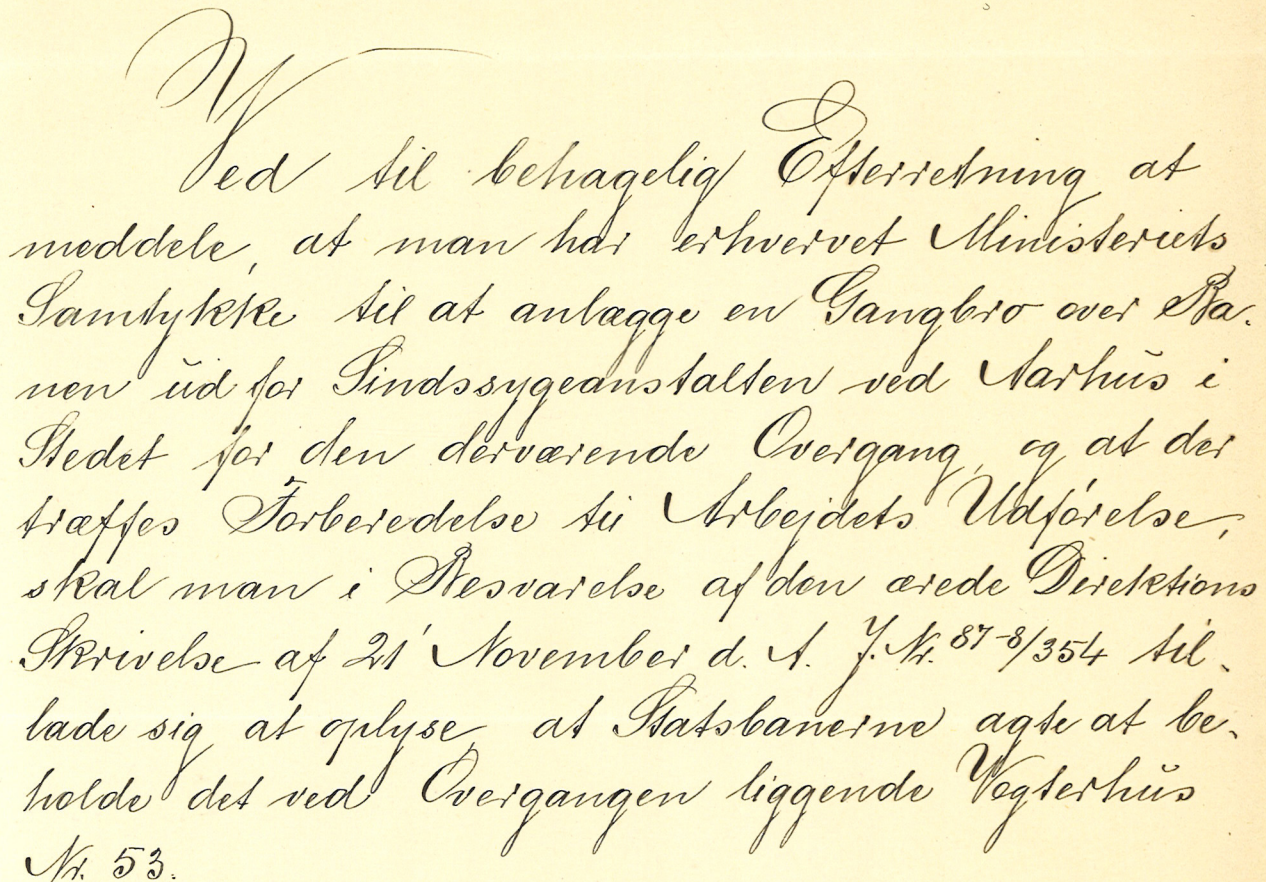 Ved til behagelig Efterretning at
meddele, at man har erhvervet Ministeriets
Samtykke til at anlægge en Gangbro over Ba-
nen ud for Sindssygeanstalten ved Aarhus i
Stedet for den derværende Overgang, og at der
træffes Forberedelse til Arbejdets Udførelse,
skal man i Besvarelse af den ærede Direktions
Skrivelse af 21' November d. A. J. Nr. 87-8/354 til-
lade sig at oplyse, at Statsbanerne agte at be-
holde det ved Overgangen liggende Vogterhus
Nr. 53.